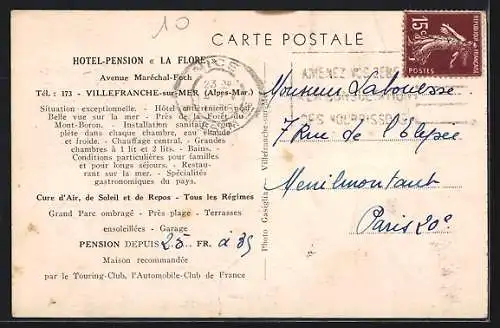 10
CARTE POSTALE
HOTEL-PENSION « LA FLORE »
Avenue Maréchal-Foch
Tél : 173 - VILLEFRANCHE-sur-MER (Alpes-Mar.)
Situation exceptionnelle. - Hôtel entièrement neuf.
Belle vue sur la mer - Près de la Forêt du
Mont-Boron. - Installation sanitaire com-
plète dans chaque chambre, eau chaude
et froide. - Chauffage central. - Grandes
chambres à 1 lit et 2 lits. - Bains. -
Conditions particulières pour familles
et pour longs séjours. - Restau-
rant sur la mer. - Spécialités
gastronomiques du pays.
Cure d'Air, de Soleil et de Repos - Tous les Régimes
Grand Parc ombragé - Près plage - Terrasses
ensoleillées - Garage
PENSION DEPUIS 25 FR. à 35
Maison recommandée
par le Touring-Club, l'Automobile-Club de France
Photo Gasiglia Villefranche-sur-Mer
NICE
AMENEZ VOS BEBES
A LA CONSULTATION
DES NOURRISSONS
15c
POSTES
Monsieur Labouesse
7 Rue de l'Elysée
Menilmontant
Paris 20e